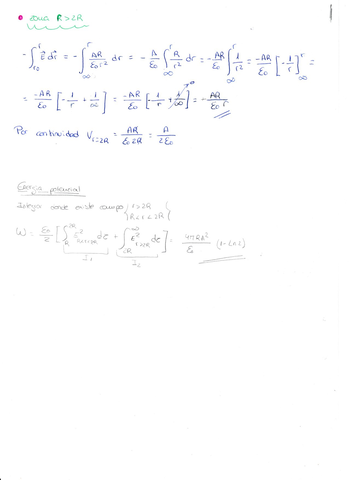 zona R>2R
- ∫_{r0}^{r} E⃗ dr⃗ = - ∫_{∞}^{r} AR/ε0 r² dr = - A/ε0 ∫_{∞}^{r} R/r² dr = - AR/ε0 ∫_{∞}^{r} 1/r² = -AR/ε0 [- 1/r]_{∞}^{r} =
= -AR/ε0 [- 1/r + 1/∞] = -AR/ε0 [- 1/r + 1/∞] = - AR/ε0 r
Por continuidad V_{r=2R} = AR/ε0 2R = A/2ε0
Energía potencial
Integro donde existe campo { r>2R
R<r<2R
W = ε0/2 [ ∫_{R}^{2R} E² dτ + ∫_{2R}^{∞} E²_{r>2R} dτ ] =
I1